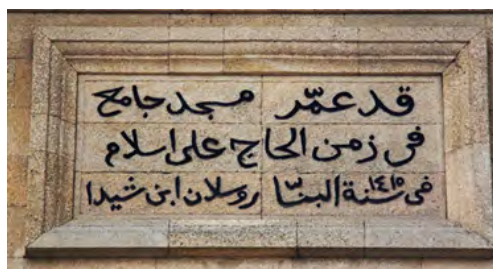 قد عمّر مسجد جامع
فى زمن الحاج على اسلام
فى سنة ١٤١٥ البنّا روسلان ابن شيدا